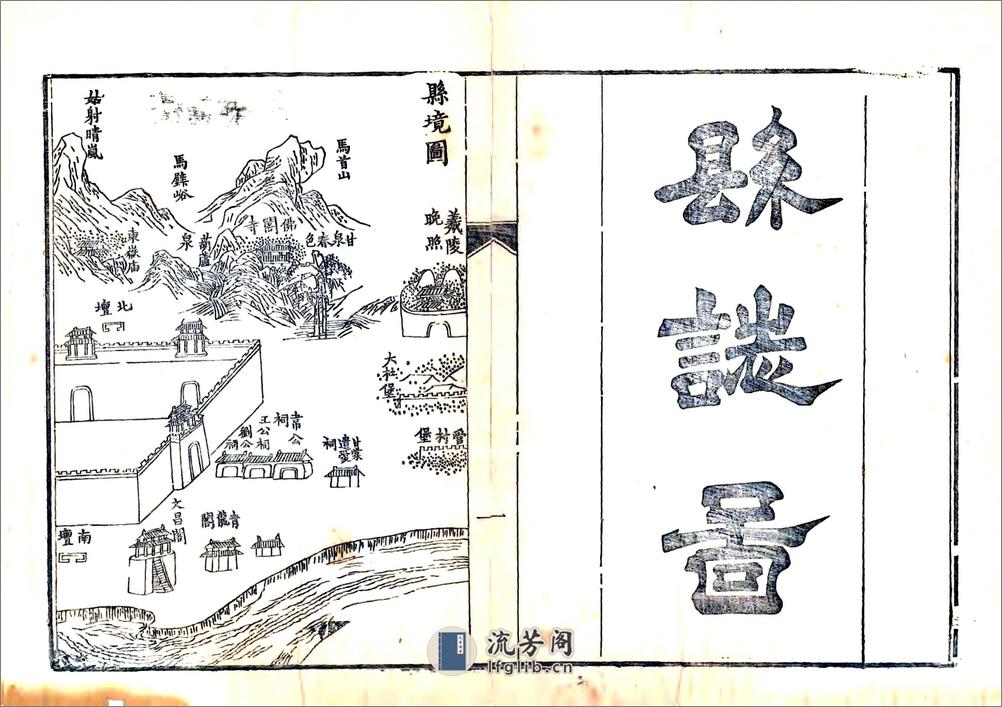 縣誌圖
縣境圖
羲陵
晚照
馬首山
甘泉春色
佛閣寺
葫蘆
泉
馬鞍峪
姑射晴嵐
東嶽庙
北壇
大社堡
晉村堡
常公
祠
王公祠
劉公
祠
甘棠
遺愛
祠
文昌閣
青龍閣
南壇
一
流芳阁
lfglib.cn